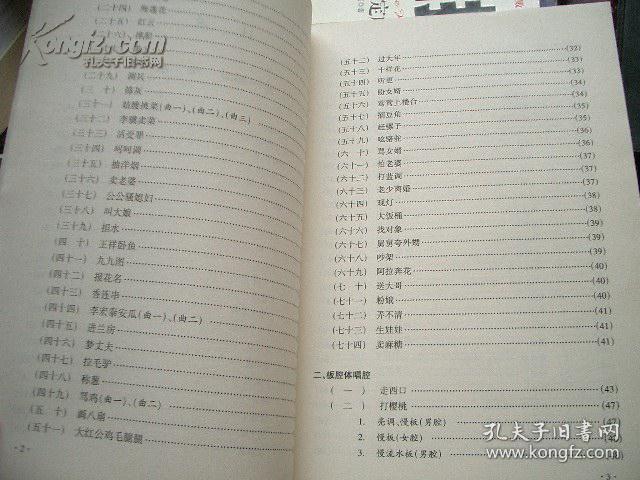 (二十四) 梅莲花
(二十五) 红云
(二十六)
(二十九) 测兵
十)
(三十一) 姑嫂挑菜(曲一)、(曲二)、(曲三)
(三十二) 李骥卖菜
(三十三) 活受罪
(三十四) 呵呵调
(三十五) 抽洋烟
(三十六) 卖老婆
(三十七) 公公骚媳妇
(三十八) 叫大娘
(三十九) 担水
(四 十) 王祥卧鱼
(四十一) 九九图
(四十二) 报花名
(四十三) 香莲串
(四十四) 李宏泰安瓜(曲一)、(曲二)
(四十五) 进兰房
(四十六) 梦丈夫
(四十七) 拉毛驴
(四十八) 称葱
(四十九) 骂鸡(曲一)、(曲二)
(五 十) 画八扇
(五十一) 大红公鸡毛腿腿
·2·
(五十二) 过大年 (32)
(五十三) 十样花 (33)
(五十四) 听更 (33)
(五十五) 盼女婿 (34)
(五十六) 莺莺上楼台 (34)
(五十七) 捎豆角 (35)
(五十八) 赶骡子 (35)
(五十九) 吆骆驼 (36)
(六 十) 骂女婿 (36)
(六十一) 怕老婆 (37)
(六十二) 打蓝调 (37)
(六十三) 老少离婚 (38)
(六十四) 观灯 (38)
(六十五) 大饭桶 (38)
(六十六) 找对象 (39)
(六十七) 舅舅夸外甥 (39)
(六十八) 吵架 (39)
(六十九) 阿拉奔花 (40)
(七 十) 送大哥 (40)
(七十一) 粉娥 (40)
(七十二) 弄不清 (41)
(七十三) 生娃娃 (41)
(七十四) 卖麻糖 (41)
二、板腔体唱腔
(一) 走西口 (43)
(二) 打樱桃 (47)
1. 亮调、慢板(男腔) (47)
2. 慢板(女腔)
3. 慢流水板(男腔)
·3·
Kongfz.com
孔夫子旧书网
孔夫子旧书网
www.kongfz.com